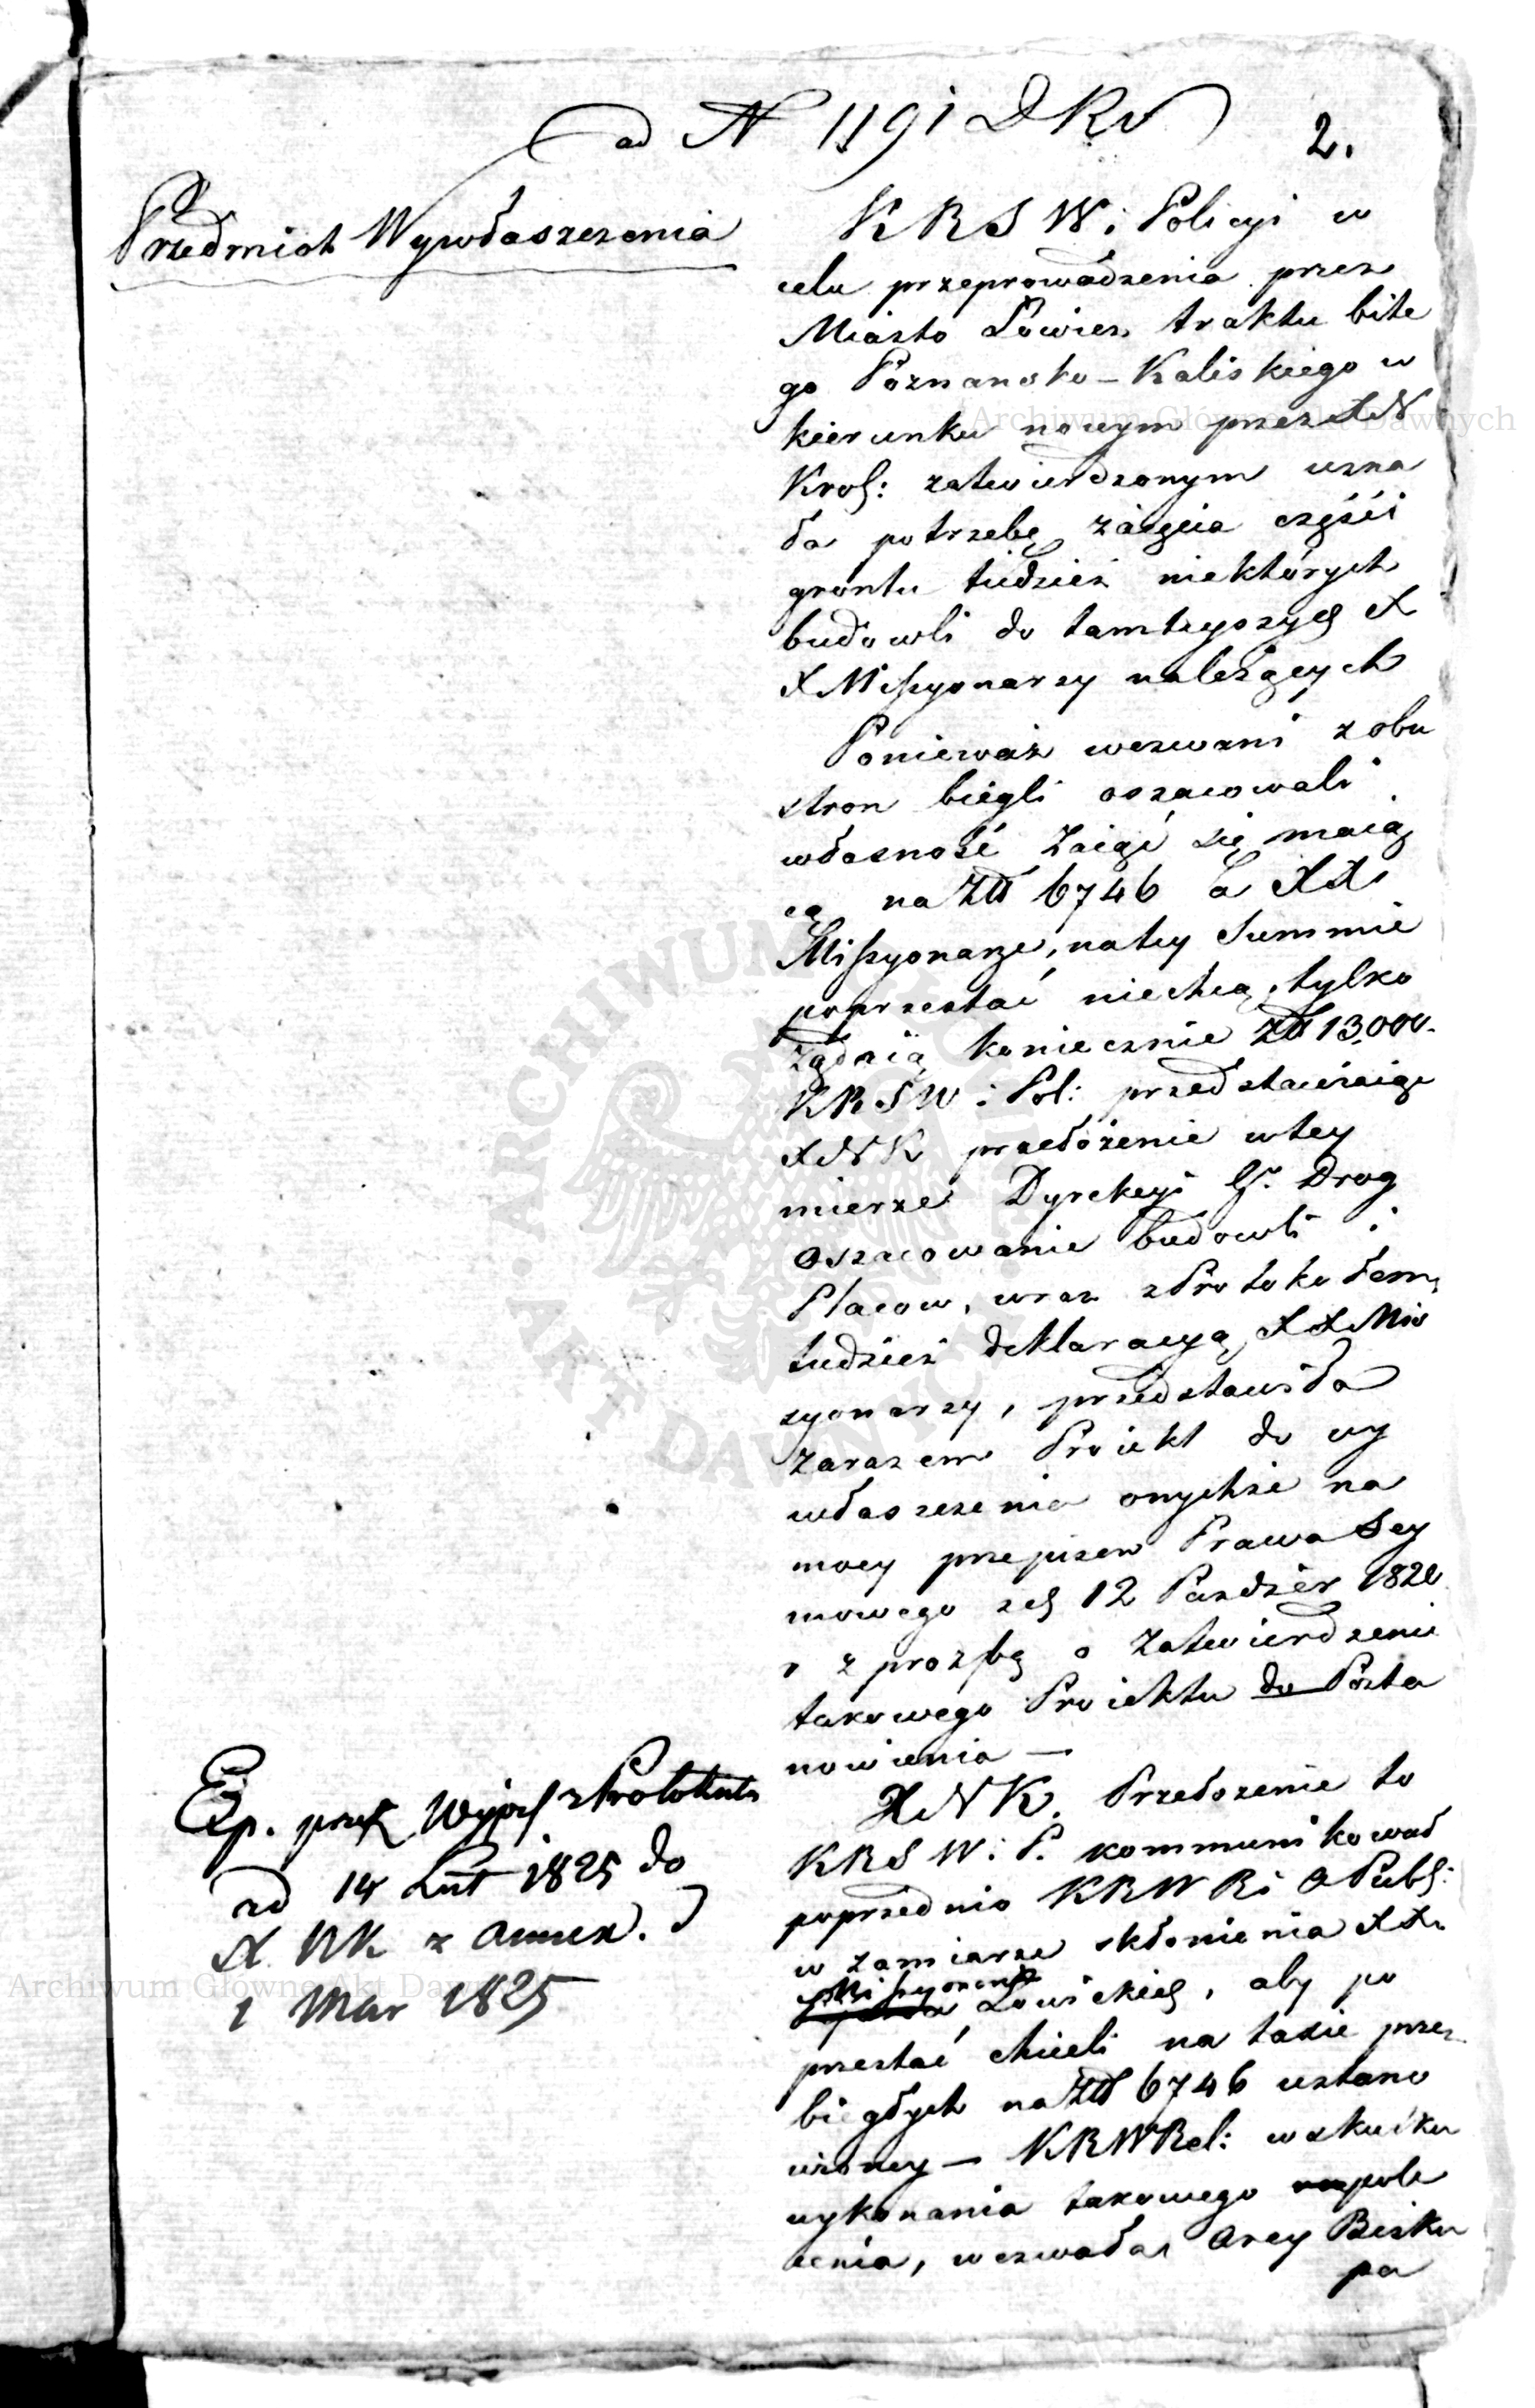 ad N 1191 DKR
2.
Przedmiot Wywłaszczenia
KRSW i Policyi w
celu przeprowadzenia przez
Miasto Łowicz traktu bite
go Poznansko-Kaliskiego w
kierunku nowym przez XN
Krol: zatwierdzonym uzna
ła potrzebę zaięcia części
gruntu tudzież niektórych
budowli do tamteyszych X
X Missyonarzy należących
Ponieważ wezwani z obu
stron biegli oszacowali
własność zaiąć się maią
cą na Złł 6746 a XX
Missyonarze, na tey Summie
poprzestać niechcą, tylko
żądaią koniecznie Złł 13,000.
KRSW i Pol: przedstawiaiąc
XNK przełożenie w tey
mierze Dyrekcyi G. Drog
oszacowanie budowli i
Placow, wraz z Protokołem,
tudzież deklaracyą XX Mis
syonarzy, przedstawiła
zarazem Proiekt do wy
właszczenia onychże na
mocy przepisow Prawa Sey
mowego z d 12 Pazdzier 1820
r z prozbą o zatwierdzenie
takowego Proiektu do Posta
nowienia —
XNK. Przełożenie to
KRSW i P. kommunikował
poprzednio KRWR i OPubl:
w zamiarze skłonienia XX
Missyonarzy
Łowickich, aby po
przestać chcieli na taxie przez
biegłych na Złł 6746 ustano
wioney — KRWRel: w skutku
wykonania takowego pole
cenia, wezwała Arcy Bisku
pa
Exp. przez Wypis z Protokułu
od 14 Lut 1825 do
X. NK z annex.
1 Mar 1825
Archiwum Główne Akt Dawnych
Archiwum Główne Akt Daw
ARCHIWUM GŁÓWNE AKT DAWNYCH